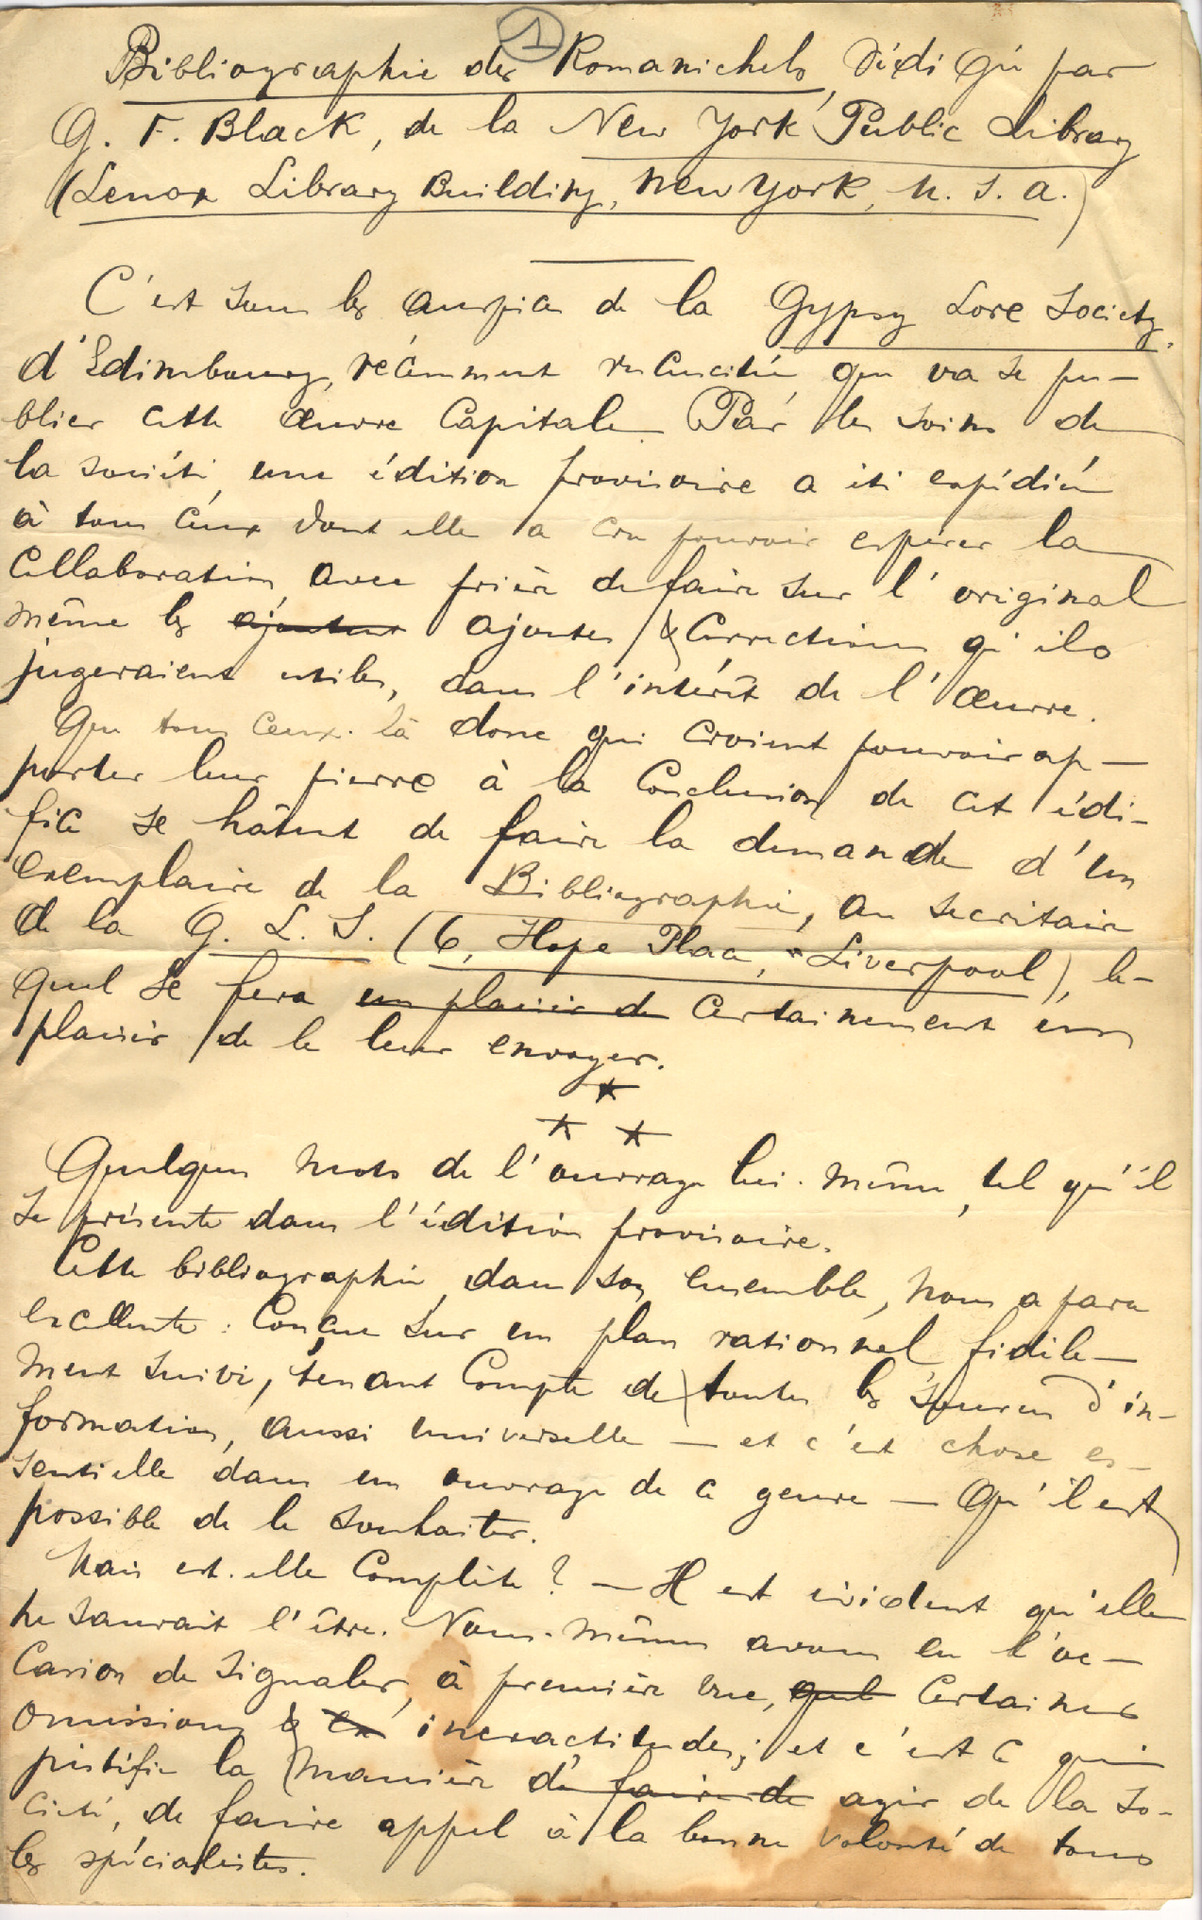 1
Bibliographie des Romanichels, rédigée par
G. F. Black, de la New York Public Library
(Lenox Library Building, New York, U. S. A.)
C'est sous les auspices de la Gypsy Lore Society,
d'Edimbourg, récemment ressuscitée que va se pu-
blier cette œuvre capitale. Par les soins de
la société, une édition provisoire a été expédiée
à tous ceux dont elle a cru pouvoir espérer la
collaboration, avec prière de faire sur l'original
même les ajoutes ajoutes & corrections qu'ils
jugeraient utiles, dans l'intérêt de l'œuvre.
Que tous ceux-là donc qui croient pouvoir ap-
porter leur pierre à la conclusion de cet édi-
fice se hâtent de faire la demande d'un
exemplaire de la Bibliographie, au secrétaire
de la G. L. S. (6, Hope Place, Liverpool), le-
quel se fera un plaisir de certainement un
plaisir de le leur envoyer.
*
* *
Quelques mots de l'ouvrage lui-même, tel qu'il
se présente dans l'édition provisoire.
Cette bibliographie, dans son ensemble, nous a paru
excellente : conçue sur un plan rationnel fidèle-
ment suivi, tenant compte de toutes les sources d'in-
formation, aussi universelle — et c'est chose es-
sentielle dans un ouvrage de ce genre — qu'il est
possible de le souhaiter.
Mais est-elle complète ? — Il est évident qu'elle
ne saurait l'être. Nous-mêmes avons eu l'oc-
casion de signaler, à première vue, quel certaines
omissions & inexactitudes ; et c'est ce qui
justifie la manière de faire de agir de la so-
ciété, de faire appel à la bonne volonté de tous
les spécialistes.